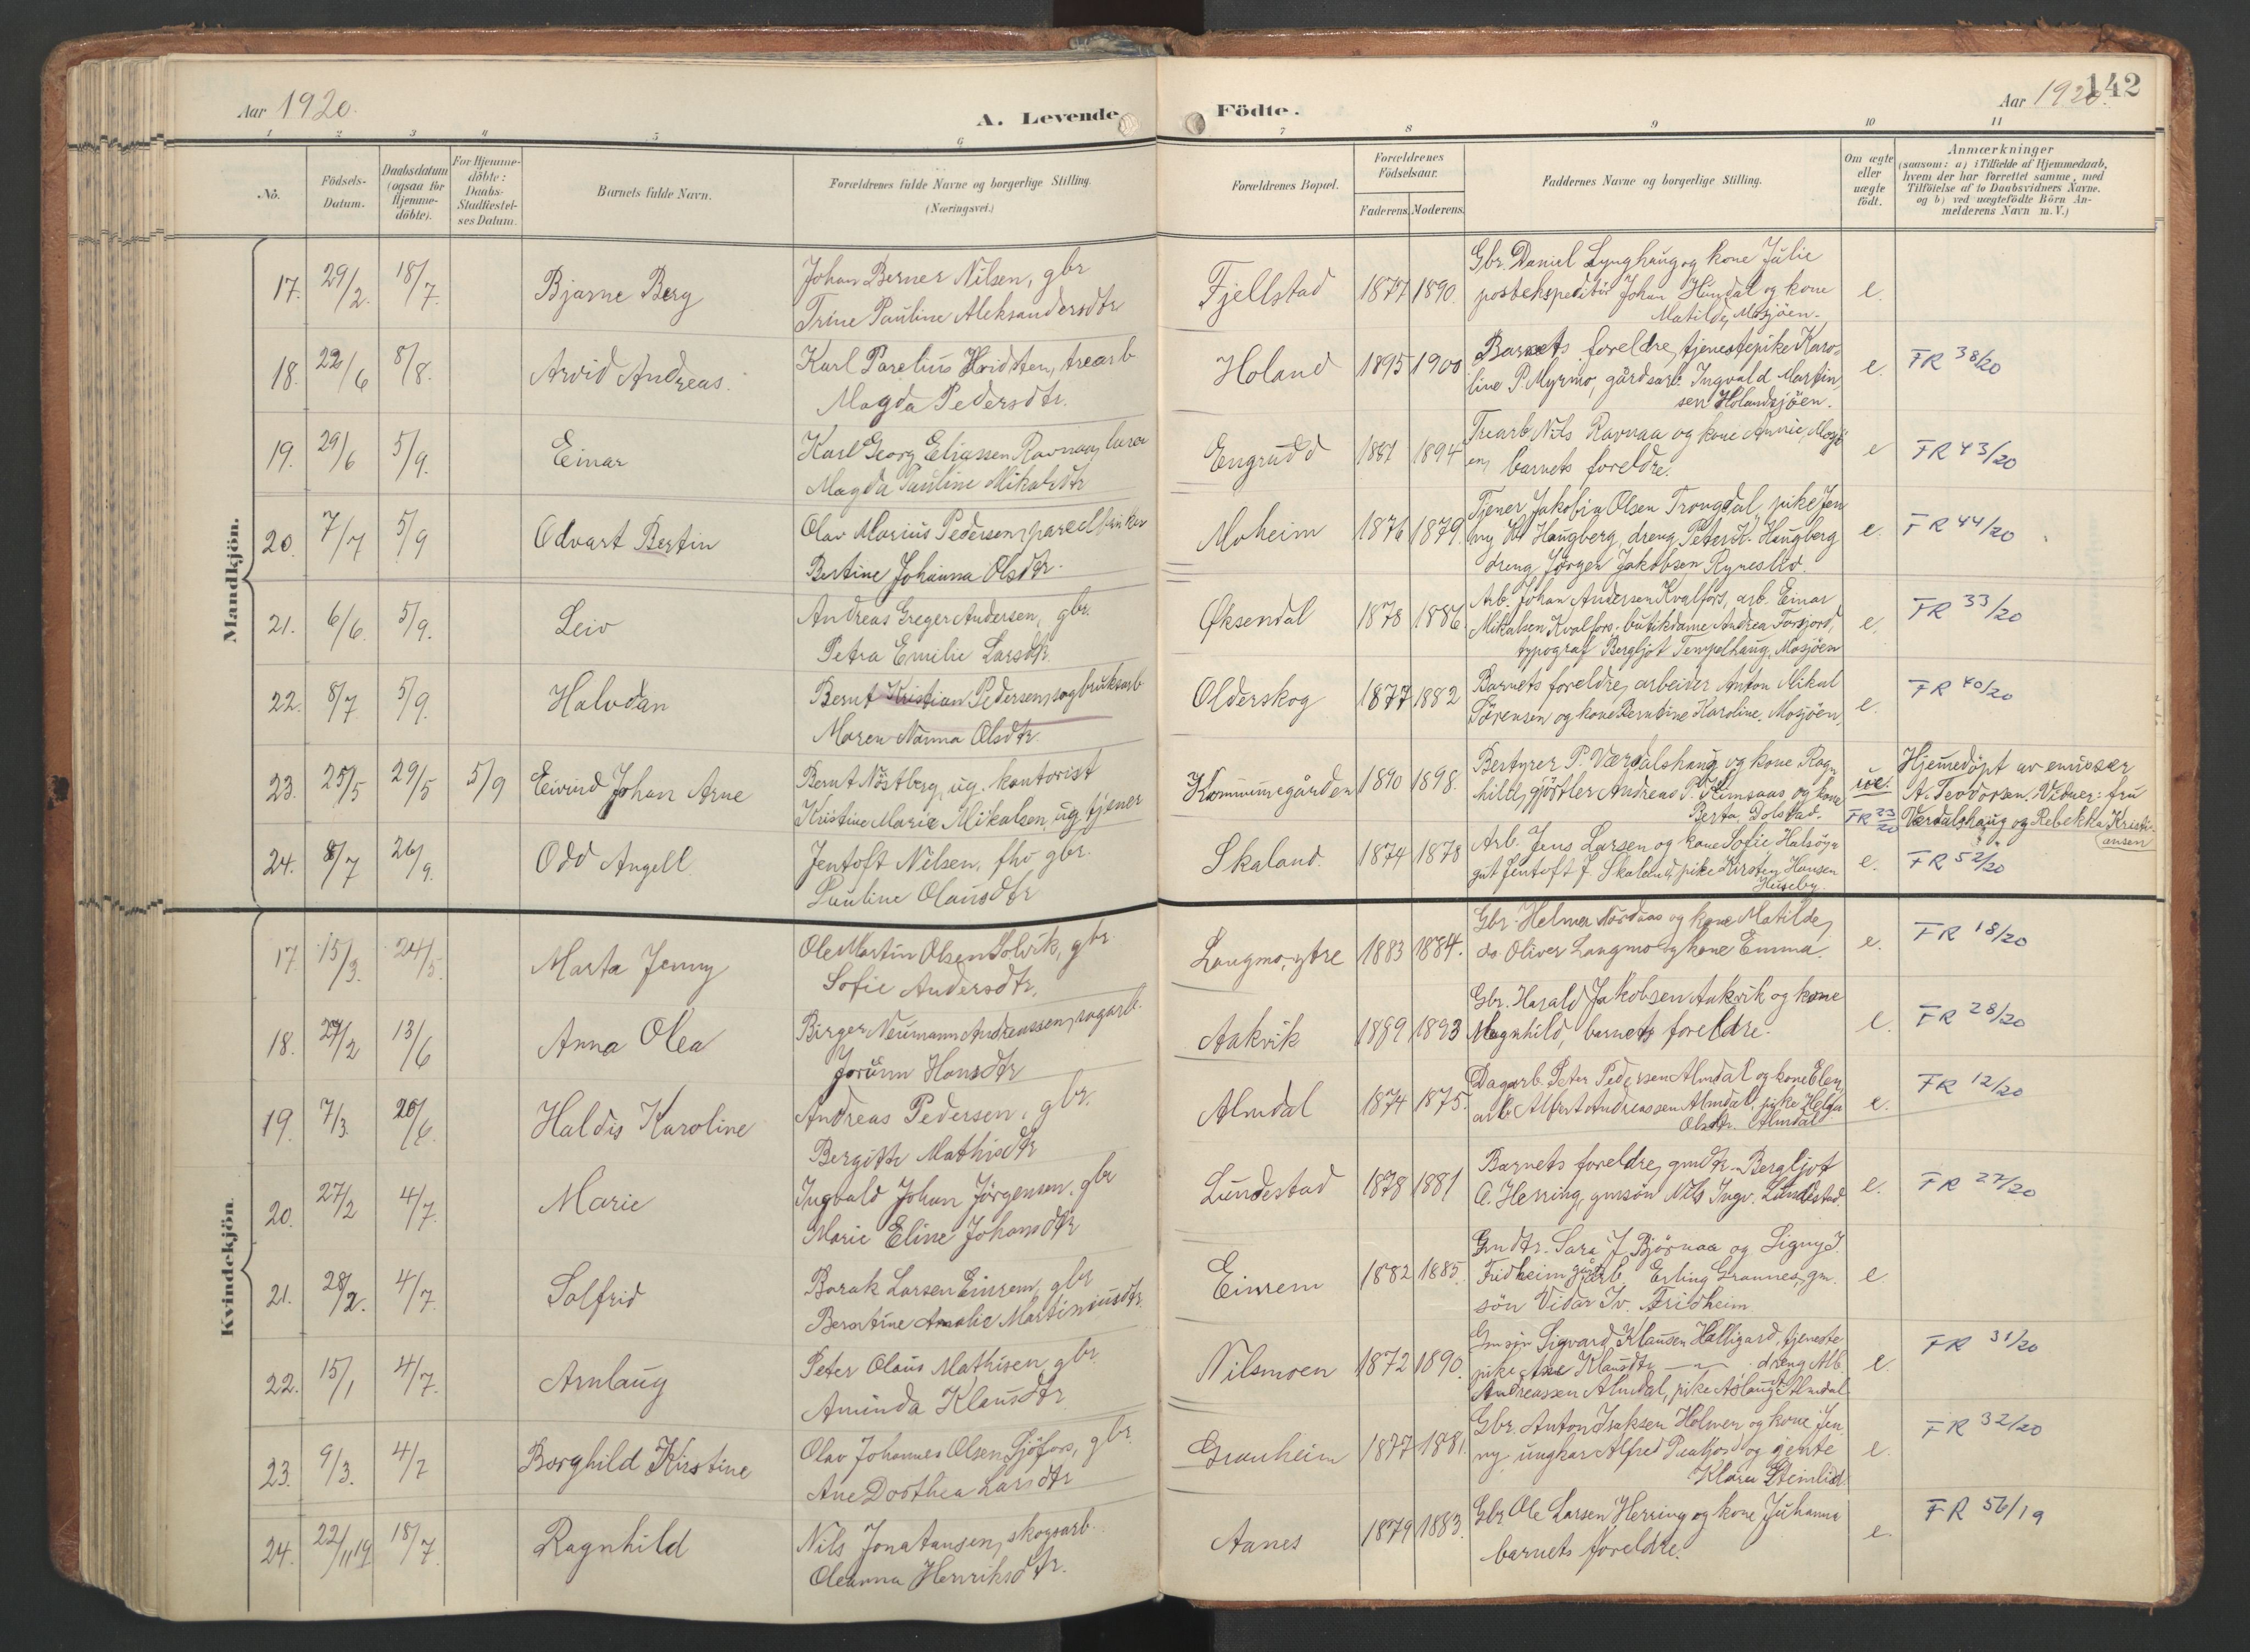 Aar 1920.
A. Levende
Födte.
Aar 1920.
142
1 2 3 4 5 6 7 8 9 10 11
No.
Födsels-
Datum.
Daabsdatum
(ogsaa for
Hjemme-
döbte).
For Hjemme-
döbte:
Daabs-
Stadfæstel-
ses Datum.
Barnets fulde Navn.
Forældrenes fulde Navne og borgerlige Stilling.
(Næringsvei.)
Forældrenes Bopæl.
Forældrenes
Födselsaar.
Faderens. Moderens.
Faddernes Navne og borgerlige Stilling.
Om ægte
eller
uægte
födt.
Anmærkninger
(saasom: a) i Tilfælde af Hjemmedaab,
hvem der har forrettet samme, med
Tilföielse af to Daabsvidners Navne.
og b) ved uægtefödte Börn An-
melderens Navn m. V.)
Mandkjön.
17. 29/2. 18/7. Bjarne Berg
Johan Berner Nilsen, gbr
Trine Pauline Aleksandersdtr
Fjellstad 1877 1890.
Gbr. Daniel Lynghaug og kone Julie
postekspeditör Johan Hundal og kone
Matilde, Mosjöen.
e.
18. 22/6 8/8. Arvid Andreas.
Karl Parelius Hvidsten, trearb
Magda Pedersdtr.
Holand 1895 1900
Barnets foreldre, tjenestepike Karo-
line P. Myrmo, gårdsarb. Ingvald Martin
sen Holandsjöen.
e. FR 38/20
19. 29/6 5/9. Einar
Karl Georg Eliassen Ravnaa, lærer
Magda Pauline Mikalsdtr
Engrudd 1887 1894
Trearb Nils Ravnaa og kone Annie, Mosjö
en, barnets foreldre.
e FR 43/20
20. 7/7 5/9 Edvart Bertin
Olav Marius Pedersen, parcelbruker
Bertine Johanna Olsdtr.
Moheim 1876 1879.
Tjener Jakobia Olsen Trongdal, pike Jen
ny Kl Haugberg, dreng Peter K. Haugberg
dreng Jörgen Jakobsen Rynes
e. FR 44/20
21. 6/6. 5/9. Leiv
Andreas Greger Andersen, gbr.
Petra Emilie Larsdtr.
Øksendal 1878 1886
Arb. Johan Andersen Kvalfors, arb. Einar
Mikalsen Kvalfors. butikdame Andrea Forsjord,
typograf Bergljot Tempelhaug, Mosjöen
e. FR 33/20
22. 8/7 5/9. Halvdan
Bernt Kristian Pedersen, sagbruksarb
Maren Nanna Olsdtr.
Olderskog 1877 1882
Barnets foreldre, arbeider Anton Mikal
Sörensen og kone Berntine Karoline, Mosjöen,
e. FR 40/20
23. 25/5 29/5 5/9 Eivind Johan Arne
Bernt Nöstberg, ug. kontorist
Kristine Marie Mikalsen, ug. tjener
Kommunegården 1890 1898.
Bestyrer P. Værdalshaug og kone Ragn
hild, gjörtler Andreas P. Kimsaas og kone
Berta, Dolstad.
ue. FR 23/20
Hjemedöpt av emissær
A. Teodorsen. Vidner: fru
Værdalshaug og Rebekka Kristi-
ansen
24. 8/7 26/9. Odd Angell.
Jentoft Nilsen, fhv gbr.
Pauline Olausdtr
Skaland. 1874 1878
Arb. Jens Larsen og kone Sofie Halsöya
gut Jentoft J. Skaland, pike Kirsten Hansen
Huseby.
e. FR 52/20
Kvindekjön
17. 15/3. 24/5. Marta Jenny
Ole Martin Olsen Solvik, gbr.
Sofie Andersdtr.
Langmo, ytre 1883 1884.
Gbr. Helmer Nordaas og kone Matilde,
do Oliver Langmo og kone Emma.
e. FR 18/20
18. 27/2 13/6 Anna Olea
Birger Neumann Andreassen, sagarb.
Jorunn Hansdtr
Aakvik 1889 1893
Gbr. Harald Jakobsen Aakvik og kone
Magnhild, barnets foreldre.
e. FR 28/20
19. 7/3. 20/6. Haldis Karoline
Andreas Pedersen, gbr.
Bergitte Mathisdtr
Almdal 1874 1875.
Dagarb. Peter Pedersen Almdal og kone Elen,
arb. Albert Andreassen Almdal, pike Helga
Olsdtr. Almdal
e. FR 12/20
20. 27/2 4/7. Marie
Ingvald Johan Jörgensen, gbr
Marie Eline Johansdtr
Lundestad 1878 1881
Barnets foreldre, gmdtr. Bergljot
A. Herring, gmsön Nils Ingv. Lundestad.
e. FR 27/20
21. 28/2. 4/7. Solfrid
Barak Larsen Einrem, gbr
Berntine Amalie Martiniusdtr.
Einrem 1882 1885.
Gmdtr. Sara J. Björnaa og Signy I.
Fridheim gårdarb. Erling Grannes, gm.
sön Vidar Iv. Fridheim.
e.
22. 15/1 4/7. Arnlaug
Peter Olaus Mathisen, gbr.
Aminda Klausdtr.
Nilsmoen 1872 1890.
Gmsön Sigvard Klausen Halligard, tjeneste
pike Ane Klausdtr —"— dreng Alb.
Andreassen Almdal, pike Aslaug Almdal
e. FR 31/20
23. 9/3. 4/7 Borghild Kirstine
Olav Johannes Olsen Sjöfors, gbr.
Ane Dorthea Larsdtr
Granheim 1877 1881.
Gbr. Anton Isaksen Holmen og kone Jen
ny, ungkar Alfred og gjente
Klara Steinlid.
e. FR 32/20
24. 22/11 19 18/7. Ragnhild
Nils Jonatansen, skogsarb.
Oleanna Henriksdtr.
Aanes 1879 1883.
Gbr Ole Larsen Herring og kone Juhanna
barnets foreldre.
e. FR 56/19